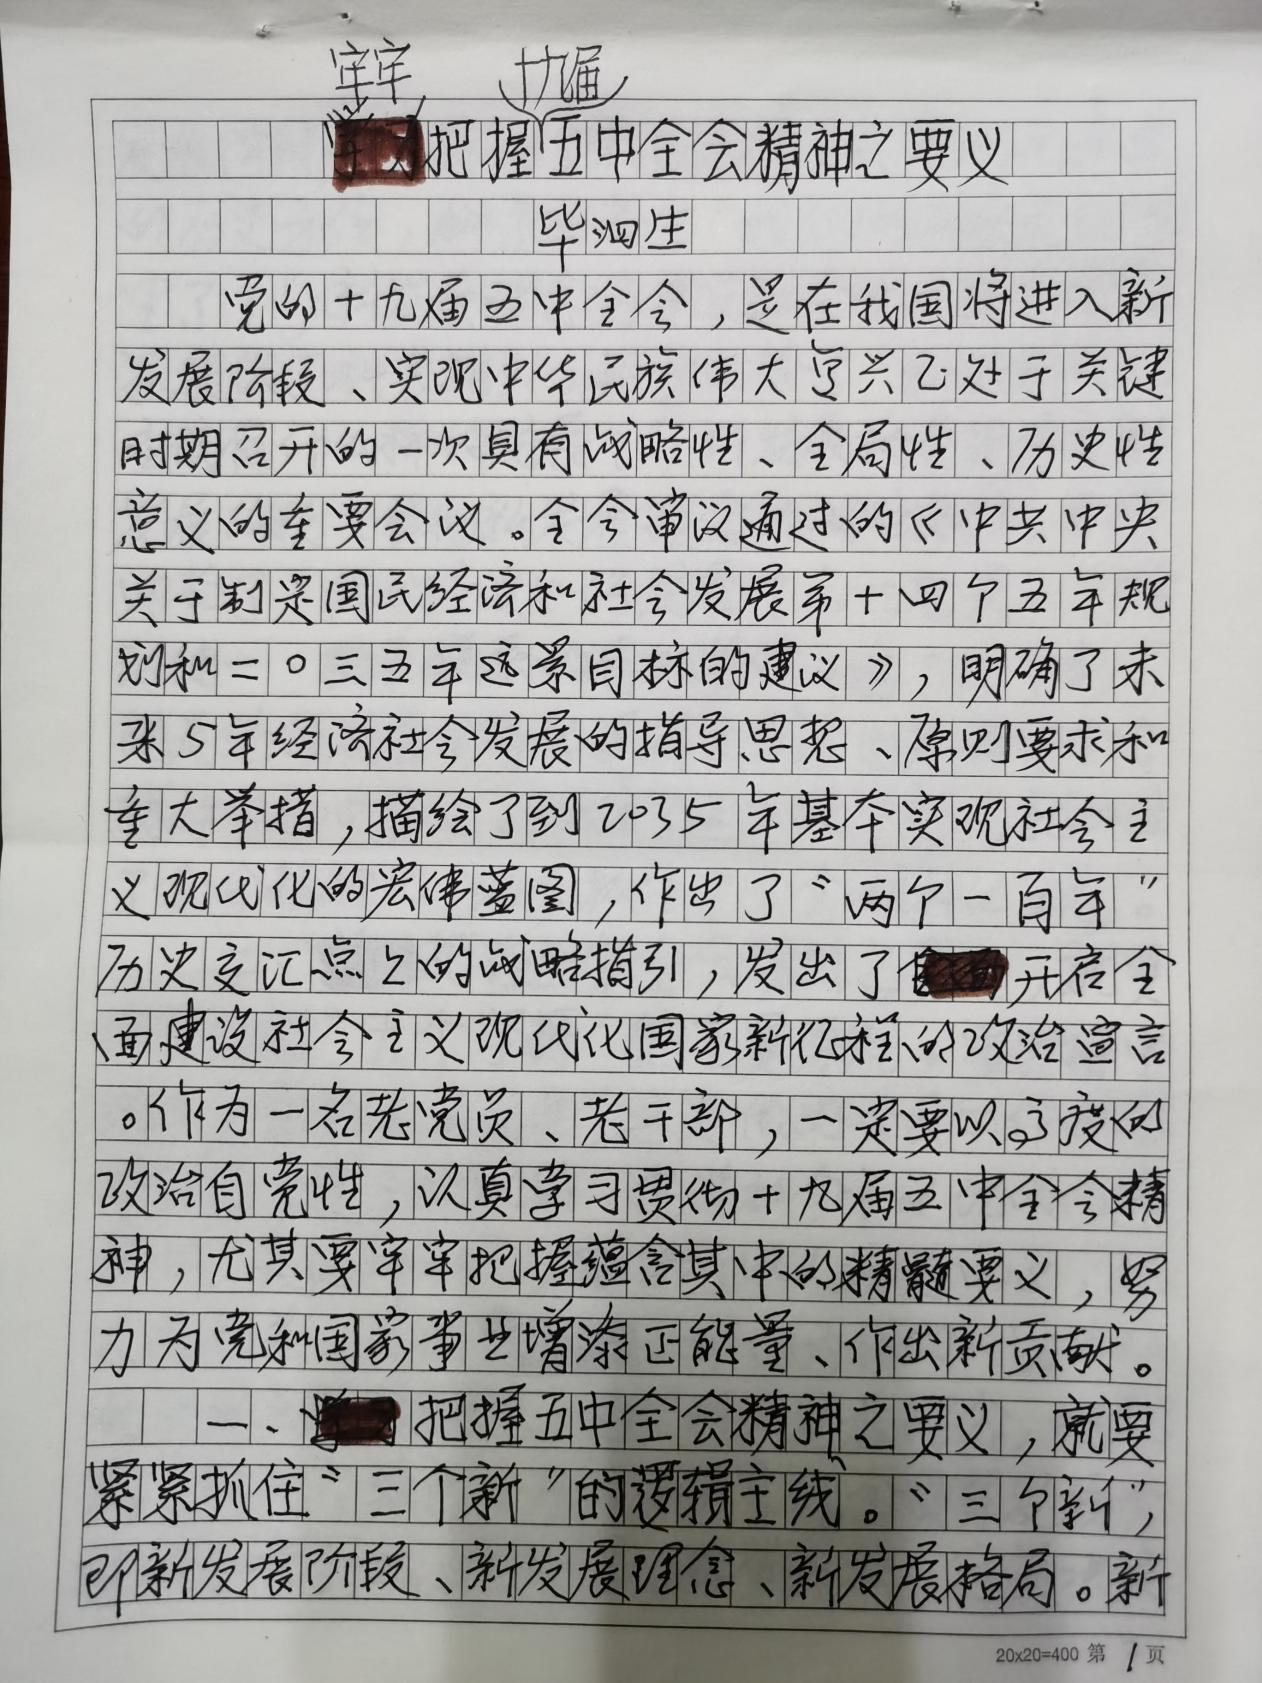 牢牢 十九届
把握五中全会精神之要义
毕泗生
党的十九届五中全会，是在我国将进入新
发展阶段、实现中华民族伟大复兴正处于关键
时期召开的一次具有战略性、全局性、历史性
意义的重要会议。全会审议通过的《中共中央
关于制定国民经济和社会发展第十四个五年规
划和二〇三五年远景目标的建议》，明确了未
来5年经济社会发展的指导思想、原则要求和
重大举措，描绘了到2035年基本实现社会主
义现代化的宏伟蓝图，作出了“两个一百年”
历史交汇点上的战略指引，发出了开启全
面建设社会主义现代化国家新征程的政治宣言
。作为一名老党员、老干部，一定要以高度的
政治自觉性，认真学习贯彻十九届五中全会精
神，尤其要牢牢把握蕴含其中的精髓要义，努
力为党和国家事业增添正能量、作出新贡献。
一、把握五中全会精神之要义，就要
紧紧抓住“三个新”的逻辑主线。“三个新”，
即新发展阶段、新发展理念、新发展格局。新
20x20=400 第 1 页